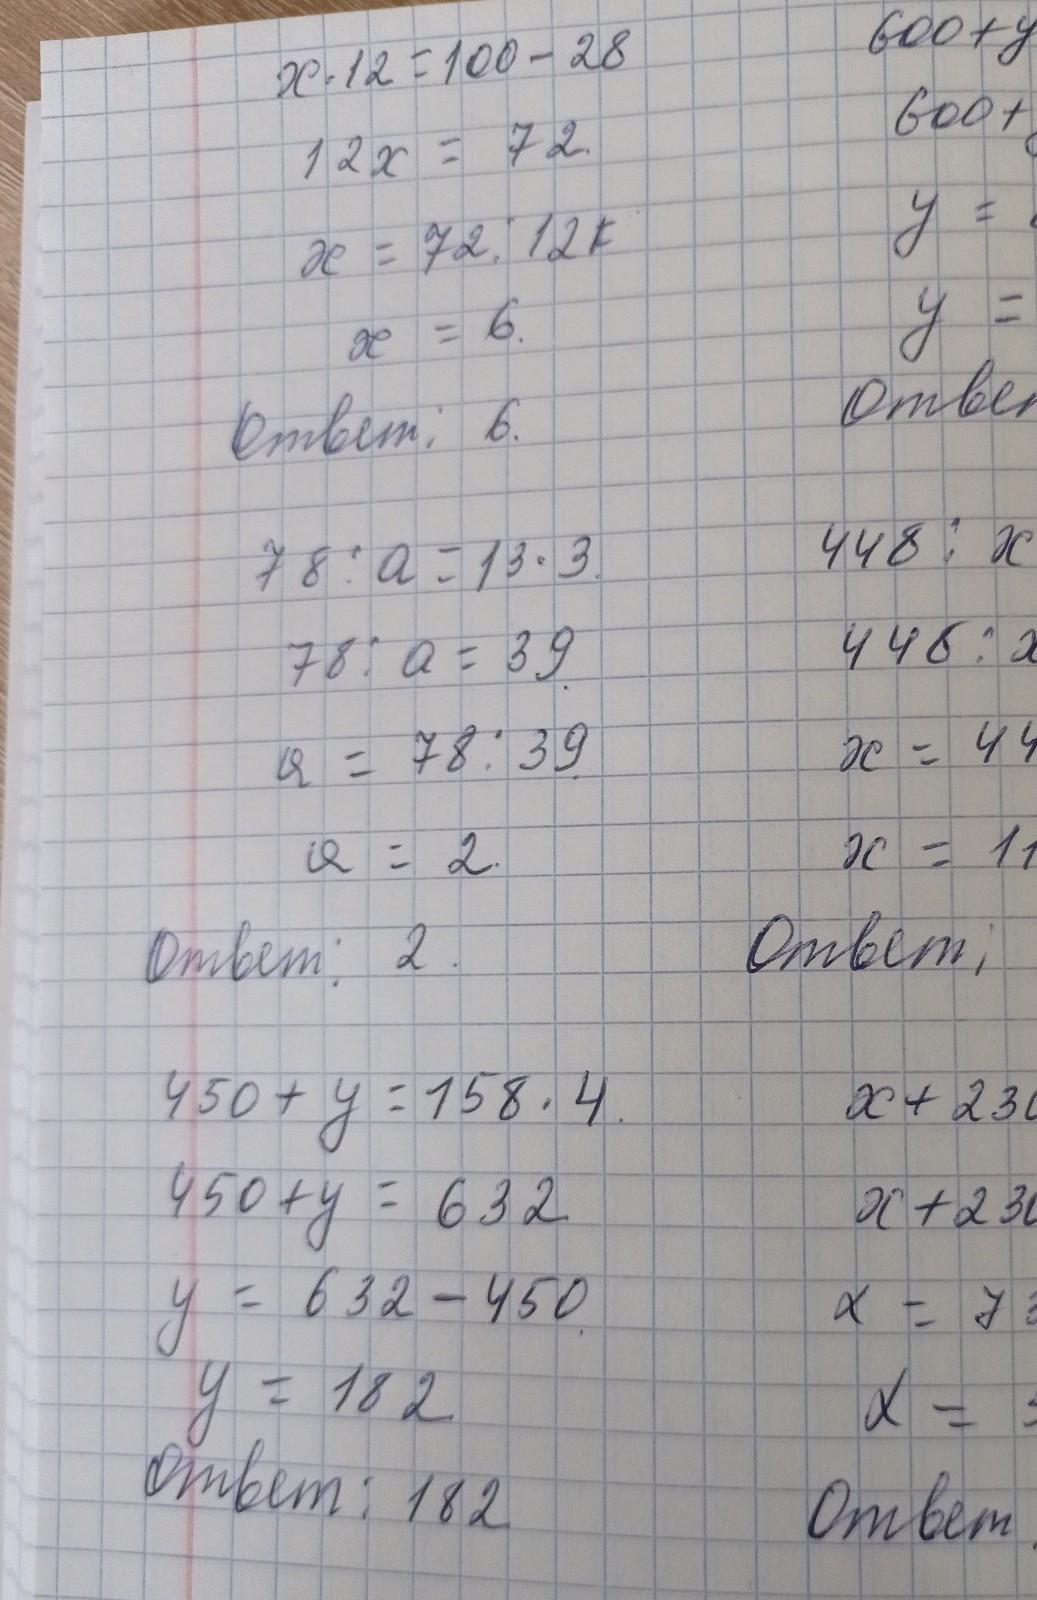 x·12=100-28
12x = 72.
x = 72:12
x = 6.
Ответ: 6.
78:a=13·3.
78:a=39.
a = 78:39.
a = 2.
Ответ: 2.
450+y=158·4.
450+y=632
y = 632-450.
y = 182
Ответ: 182
600+y
600+
y =
y =
448:x
448:x
x = 44
x = 11
Ответ:
x+230
x+230
x = 73
x =
Ответ